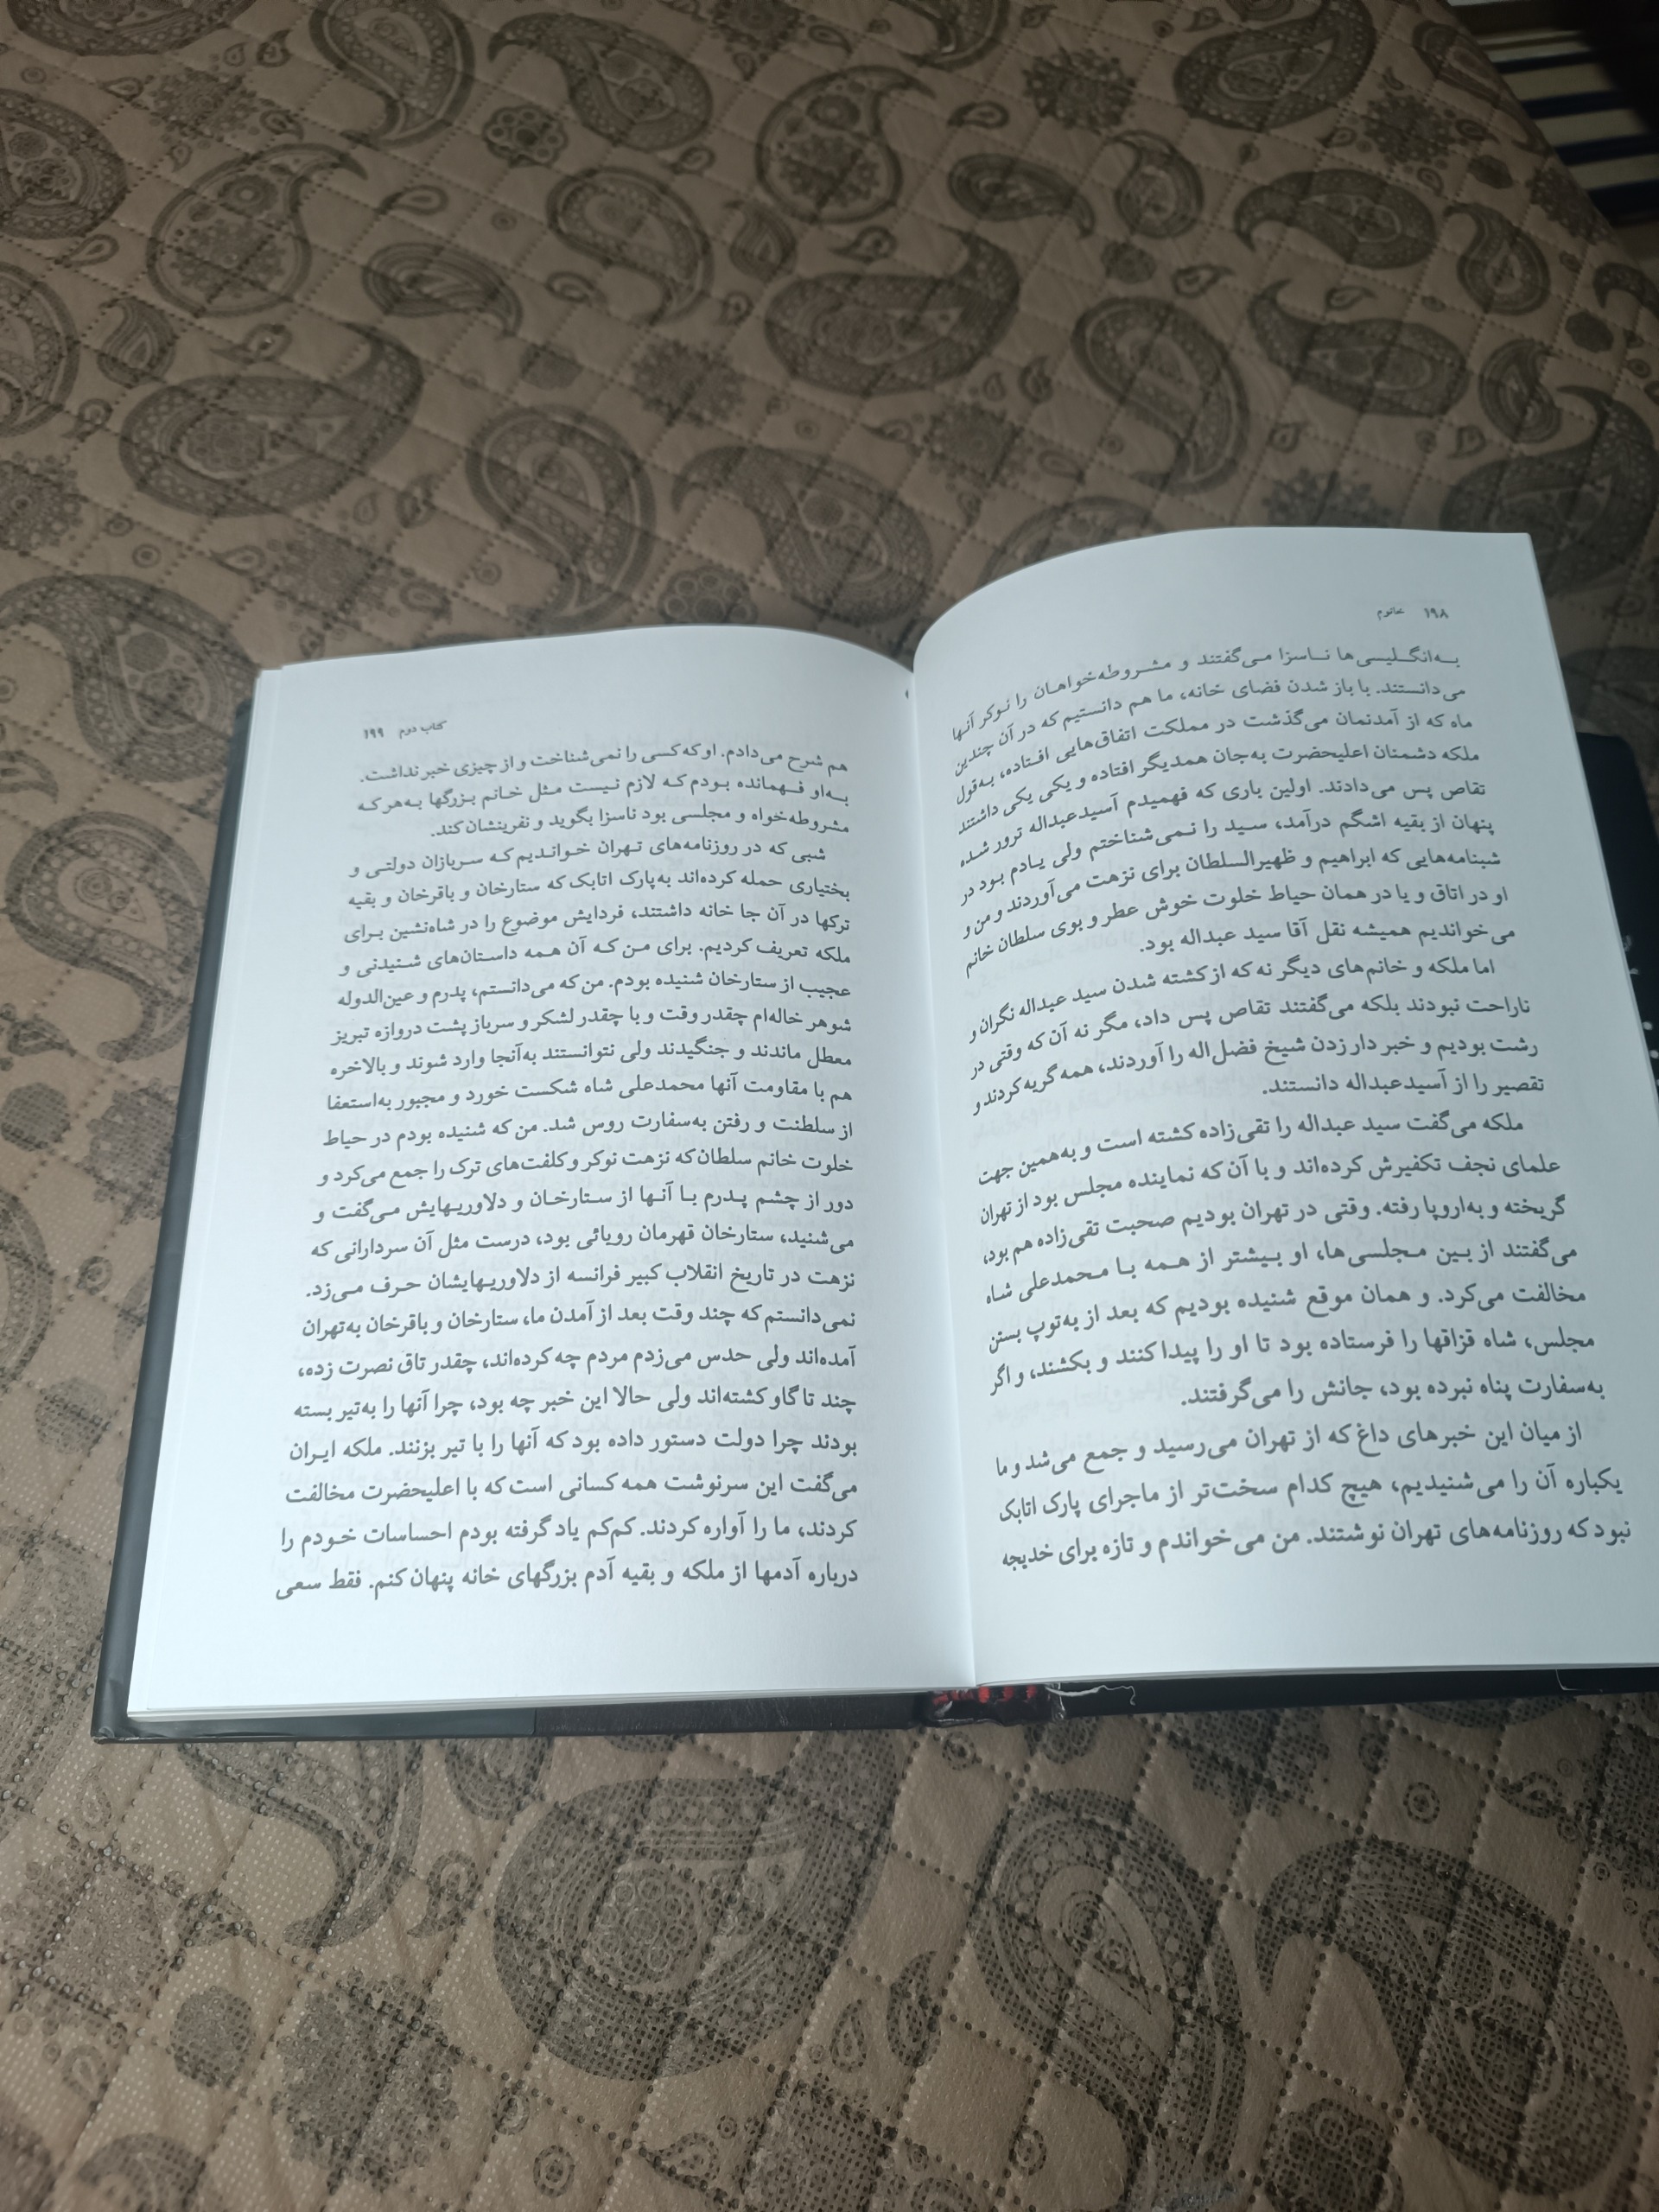 ۱۹۸ خانوم
به‌انگلیسی‌ها ناسزا می‌گفتند و مشروطه‌خواهان را نوکر آنها
می‌دانستند. با باز شدن فضای خانه، ما هم دانستیم که در آن چندین
ماه که از آمدنمان می‌گذشت در مملکت اتفاق‌هایی افتاده، به‌قول
ملکه دشمنان اعلیحضرت به‌جان همدیگر افتاده و یکی یکی داشتند
تقاص پس می‌دادند. اولین باری که فهمیدم آسیدعبداله ترور شده
پنهان از بقیه اشگم درآمد، سید را نمی‌شناختم ولی یادم بود در
شبنامه‌هایی که ابراهیم و ظهیرالسلطان برای نزهت می‌آوردند و من و
او در اتاق و یا در همان حیاط خلوت خوش عطر و بوی سلطان خانم
می‌خواندیم همیشه نقل آقا سید عبداله بود.
اما ملکه و خانم‌های دیگر نه که از کشته شدن سید عبداله نگران و
ناراحت نبودند بلکه می‌گفتند تقاص پس داد، مگر نه آن که وقتی در
رشت بودیم و خبر دار زدن شیخ فضل‌اله را آوردند، همه گریه کردند و
تقصیر را از آسیدعبداله دانستند.
ملکه می‌گفت سید عبداله را تقی‌زاده کشته است و به‌همین جهت
علمای نجف تکفیرش کرده‌اند و با آن که نماینده مجلس بود از تهران
گریخته و به‌اروپا رفته. وقتی در تهران بودیم صحبت تقی‌زاده هم بود،
می‌گفتند از بین مجلسی‌ها، او بیشتر از همه با محمدعلی شاه
مخالفت می‌کرد. و همان موقع شنیده بودیم که بعد از به‌توپ بستن
مجلس، شاه قزاقها را فرستاده بود تا او را پیدا کنند و بکشند، و اگر
به‌سفارت پناه نبرده بود، جانش را می‌گرفتند.
از میان این خبرهای داغ که از تهران می‌رسید و جمع می‌شد و ما
یکباره آن را می‌شنیدیم، هیچ کدام سخت‌تر از ماجرای پارک اتابک
نبود که روزنامه‌های تهران نوشتند. من می‌خواندم و تازه برای خدیجه
کتاب دوم ۱۹۹
هم شرح می‌دادم. او که کسی را نمی‌شناخت و از چیزی خبر نداشت.
به‌او فهمانده بودم که لازم نیست مثل خانم بزرگها به‌هر که
مشروطه‌خواه و مجلسی بود ناسزا بگوید و نفرینشان کند.
شبی که در روزنامه‌های تهران خواندیم که سربازان دولتی و
بختیاری حمله کرده‌اند به‌پارک اتابک که ستارخان و باقرخان و بقیه
ترکها در آن جا خانه داشتند، فردایش موضوع را در شاه‌نشین برای
ملکه تعریف کردیم. برای من که آن همه داستان‌های شنیدنی و
عجیب از ستارخان شنیده بودم. من که می‌دانستم، پدرم و عین‌الدوله
شوهر خاله‌ام چقدر وقت و با چقدر لشکر و سرباز پشت دروازه تبریز
معطل ماندند و جنگیدند ولی نتوانستند به‌آنجا وارد شوند و بالاخره
هم با مقاومت آنها محمدعلی شاه شکست خورد و مجبور به‌استعفا
از سلطنت و رفتن به‌سفارت روس شد. من که شنیده بودم در حیاط
خلوت خانم سلطان که نزهت نوکر و کلفت‌های ترک را جمع می‌کرد و
دور از چشم پدرم با آنها از ستارخان و دلاوریهایش می‌گفت و
می‌شنید، ستارخان قهرمان رویائی بود، درست مثل آن سردارانی که
نزهت در تاریخ انقلاب کبیر فرانسه از دلاوریهایشان حرف می‌زد.
نمی‌دانستم که چند وقت بعد از آمدن ما، ستارخان و باقرخان به‌تهران
آمده‌اند ولی حدس می‌زدم مردم چه کرده‌اند، چقدر تاق نصرت زده،
چند تا گاو کشته‌اند ولی حالا این خبر چه بود، چرا آنها را به‌تیر بسته
بودند چرا دولت دستور داده بود که آنها را با تیر بزنند. ملکه ایران
می‌گفت این سرنوشت همه کسانی است که با اعلیحضرت مخالفت
کردند، ما را آواره کردند. کم‌کم یاد گرفته بودم احساسات خودم را
درباره آدمها از ملکه و بقیه آدم بزرگهای خانه پنهان کنم. فقط سعی